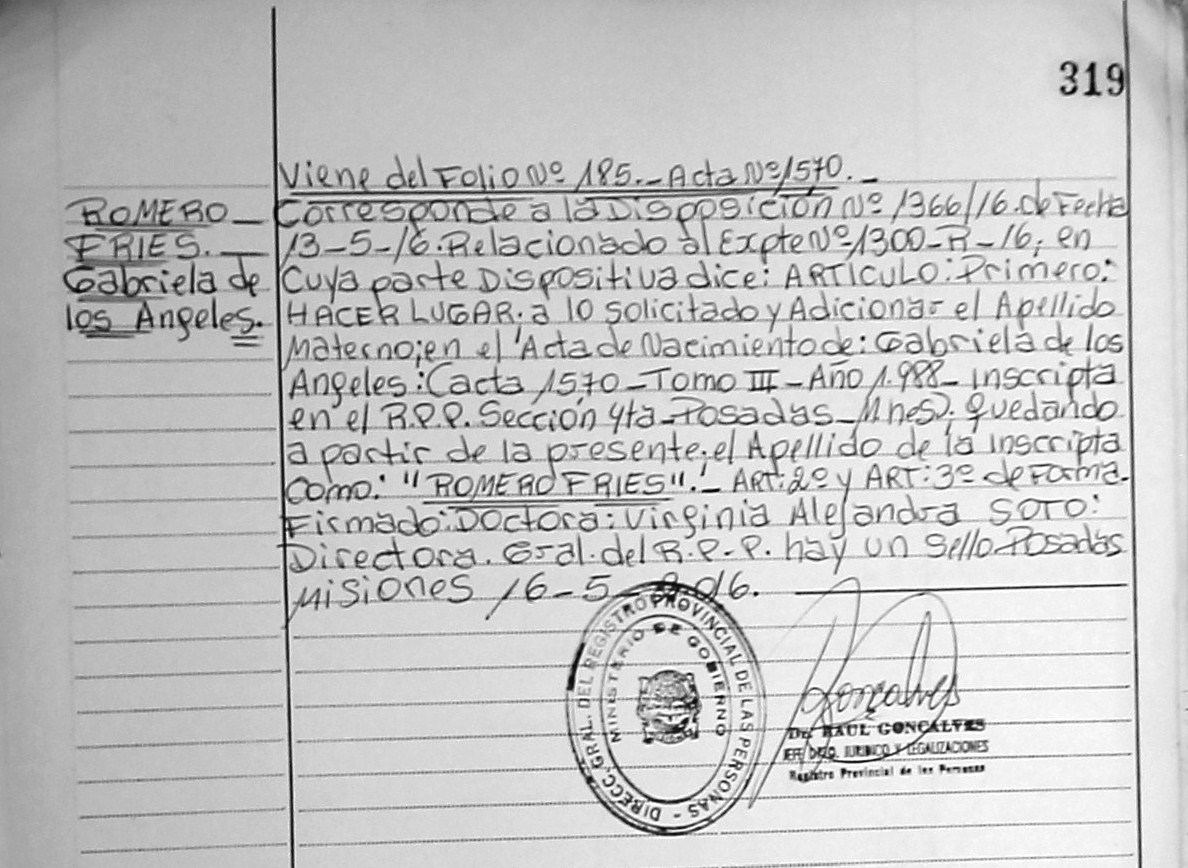 319
Viene del Folio Nº 185.-Acta Nº1570.-
ROMERO
FRIES.
Gabriela de
los Angeles.
Corresponde a la Disposición Nº 1366/16.de Fecha
13-5-16.Relacionado al Expte Nº1300-R-16; en
Cuya parte Dispositiva dice: ARTICULO: Primero:
HACER LUGAR. a lo solicitado y Adicionar el Apellido
Materno;en el Acta de Nacimiento de: Gabriela de los
Angeles: (acta 1570-Tomo III-Año 1.988- inscripta
en el R.P.P. Sección 4ta-Posadas-Mnes); quedando
a partir de la presente;el Apellido de la inscripta
Como: "ROMERO FRIES".- ART:2º y ART:3º de Forma.
Firmado:Doctora: Virginia Alejandra SOTO:
Directora. Gral. del R.P.P. hay un Sello-Posadas
Misiones 16-5-2016.
DIRECC. GRAL. DEL REGISTRO PROVINCIAL DE LAS PERSONAS -
MINISTERIO DE GOBIERNO
Goncalves
Dr. RAUL GONCALVES
JEFE DPTO. JURIDICO Y LEGALIZACIONES
Registro Provincial de las Personas